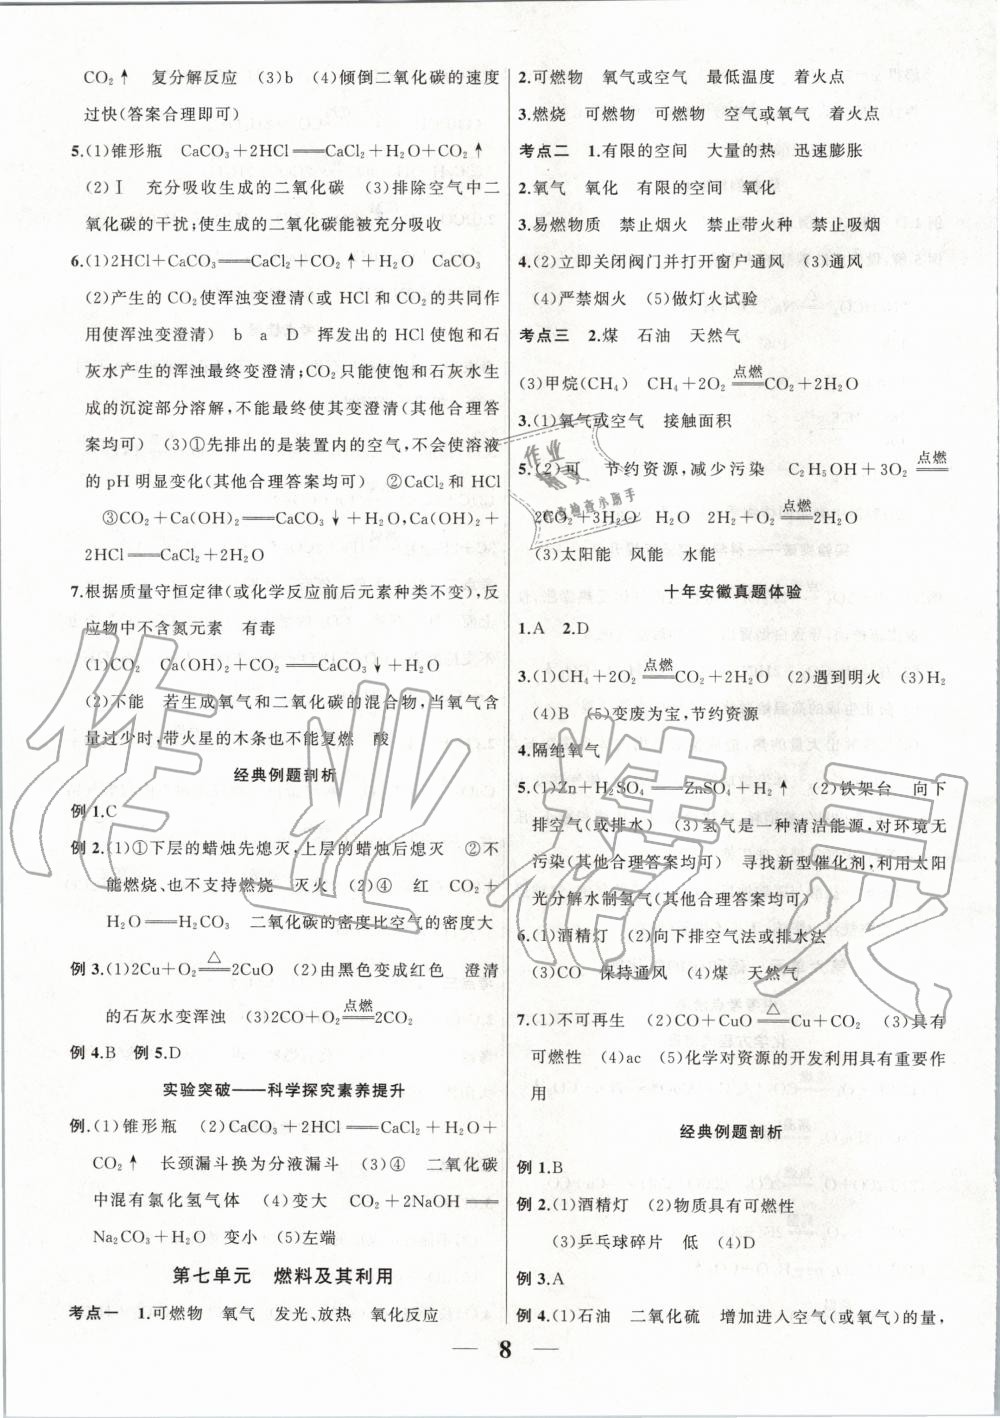 CO₂↑　复分解反应　(3)b　(4)倾倒二氧化碳的速度
过快(答案合理即可)
5.(1)锥形瓶　CaCO₃+2HCl══CaCl₂+H₂O+CO₂↑
(2)Ⅰ　充分吸收生成的二氧化碳　(3)排除空气中二
氧化碳的干扰;使生成的二氧化碳能被充分吸收
6.(1)2HCl+CaCO₃══CaCl₂+CO₂↑+H₂O　CaCO₃
(2)产生的 CO₂使浑浊变澄清(或 HCl 和 CO₂的共同作
用使浑浊变澄清)　b　a　D　挥发出的 HCl 使饱和石
灰水产生的浑浊最终变澄清;CO₂只能使饱和石灰水生
成的沉淀部分溶解,不能最终使其变澄清(其他合理答
案均可)　(3)①先排出的是装置内的空气,不会使溶液
的 pH 明显变化(其他合理答案均可)　②CaCl₂和 HCl
③CO₂+Ca(OH)₂══CaCO₃↓+H₂O,Ca(OH)₂+
2HCl══CaCl₂+2H₂O
7.根据质量守恒定律(或化学反应前后元素种类不变),反
应物中不含氮元素　有毒
(1)CO₂　Ca(OH)₂+CO₂══CaCO₃↓+H₂O
(2)不能　若生成氧气和二氧化碳的混合物,当氧气含
量过少时,带火星的木条也不能复燃　酸
经典例题剖析
例 1.C
例 2.(1)①下层的蜡烛先熄灭,上层的蜡烛后熄灭　②不
能燃烧、也不支持燃烧　灭火　(2)④　红　CO₂+
H₂O══H₂CO₃　二氧化碳的密度比空气的密度大
例 3.(1)2Cu+O₂ △══2CuO　(2)由黑色变成红色　澄清
的石灰水变浑浊　(3)2CO+O₂ 点燃══2CO₂
例 4.B　例 5.D
实验突破——科学探究素养提升
例.(1)锥形瓶　(2)CaCO₃+2HCl══CaCl₂+H₂O+
CO₂↑　长颈漏斗换为分液漏斗　(3)④　二氧化碳
中混有氯化氢气体　(4)变大　CO₂+2NaOH══
Na₂CO₃+H₂O　变小　(5)左端
第七单元　燃料及其利用
考点一　1.可燃物　氧气　发光、放热　氧化反应
2.可燃物　氧气或空气　最低温度　着火点
3.燃烧　可燃物　可燃物　空气或氧气　着火点
考点二　1.有限的空间　大量的热　迅速膨胀
2.氧气　氧化　有限的空间　氧化
3.易燃物质　禁止烟火　禁止带火种　禁止吸烟
4.(2)立即关闭阀门并打开窗户通风　(3)通风
(4)严禁烟火　(5)做灯火试验
考点三　2.煤　石油　天然气
(3)甲烷(CH₄)　CH₄+2O₂ 点燃══CO₂+2H₂O
3.(1)氧气或空气　接触面积
5.(2)可　节约资源,减少污染　C₂H₅OH+3O₂ 点燃══
2CO₂+3H₂O　H₂O　2H₂+O₂ 点燃══2H₂O
(3)太阳能　风能　水能
十年安徽真题体验
1.A　2.D
3.(1)CH₄+2O₂ 点燃══CO₂+2H₂O　(2)遇到明火　(3)H₂
(4)B　(5)变废为宝,节约资源
4.隔绝氧气
5.(1)Zn+H₂SO₄══ZnSO₄+H₂↑　(2)铁架台　向下
排空气(或排水)　(3)氢气是一种清洁能源,对环境无
污染(其他合理答案均可)　寻找新型催化剂,利用太阳
光分解水制氢气(其他合理答案均可)
6.(1)酒精灯　(2)向下排空气法或排水法
(3)CO　保持通风　(4)煤　天然气
7.(1)不可再生　(2)CO+CuO △══Cu+CO₂　(3)具有
可燃性　(4)ac　(5)化学对资源的开发利用具有重要作
用
经典例题剖析
例 1.B
例 2.(1)酒精灯　(2)物质具有可燃性
(3)乒乓球碎片　低　(4)D
例 3.A
例 4.(1)石油　二氧化硫　增加进入空气(或氧气)的量,
— 8 —
作业精灵
作业
精灵